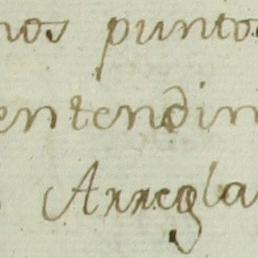 nos puntos
entendim
Arregla